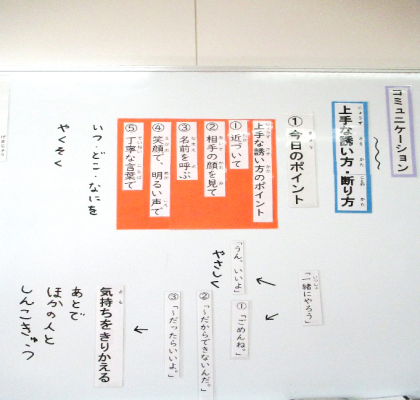 コミュニケーション
上手な誘い方・断り方
①今日のポイント
上手な誘い方のポイント
①近づいて
②相手の顔を見て
③名前を呼ぶ
④笑顔で、明るい声で
⑤丁寧な言葉で
いつ・どこ・なにを
やくそく
「一緒にやろう」
「うん、いいよ」
やさしく
①「ごめんね。」
②「〜だからできないんだ。」
③「〜だったらいいよ。」
気持ちをきりかえる
あとで
ほかの人と
しんこきゅう